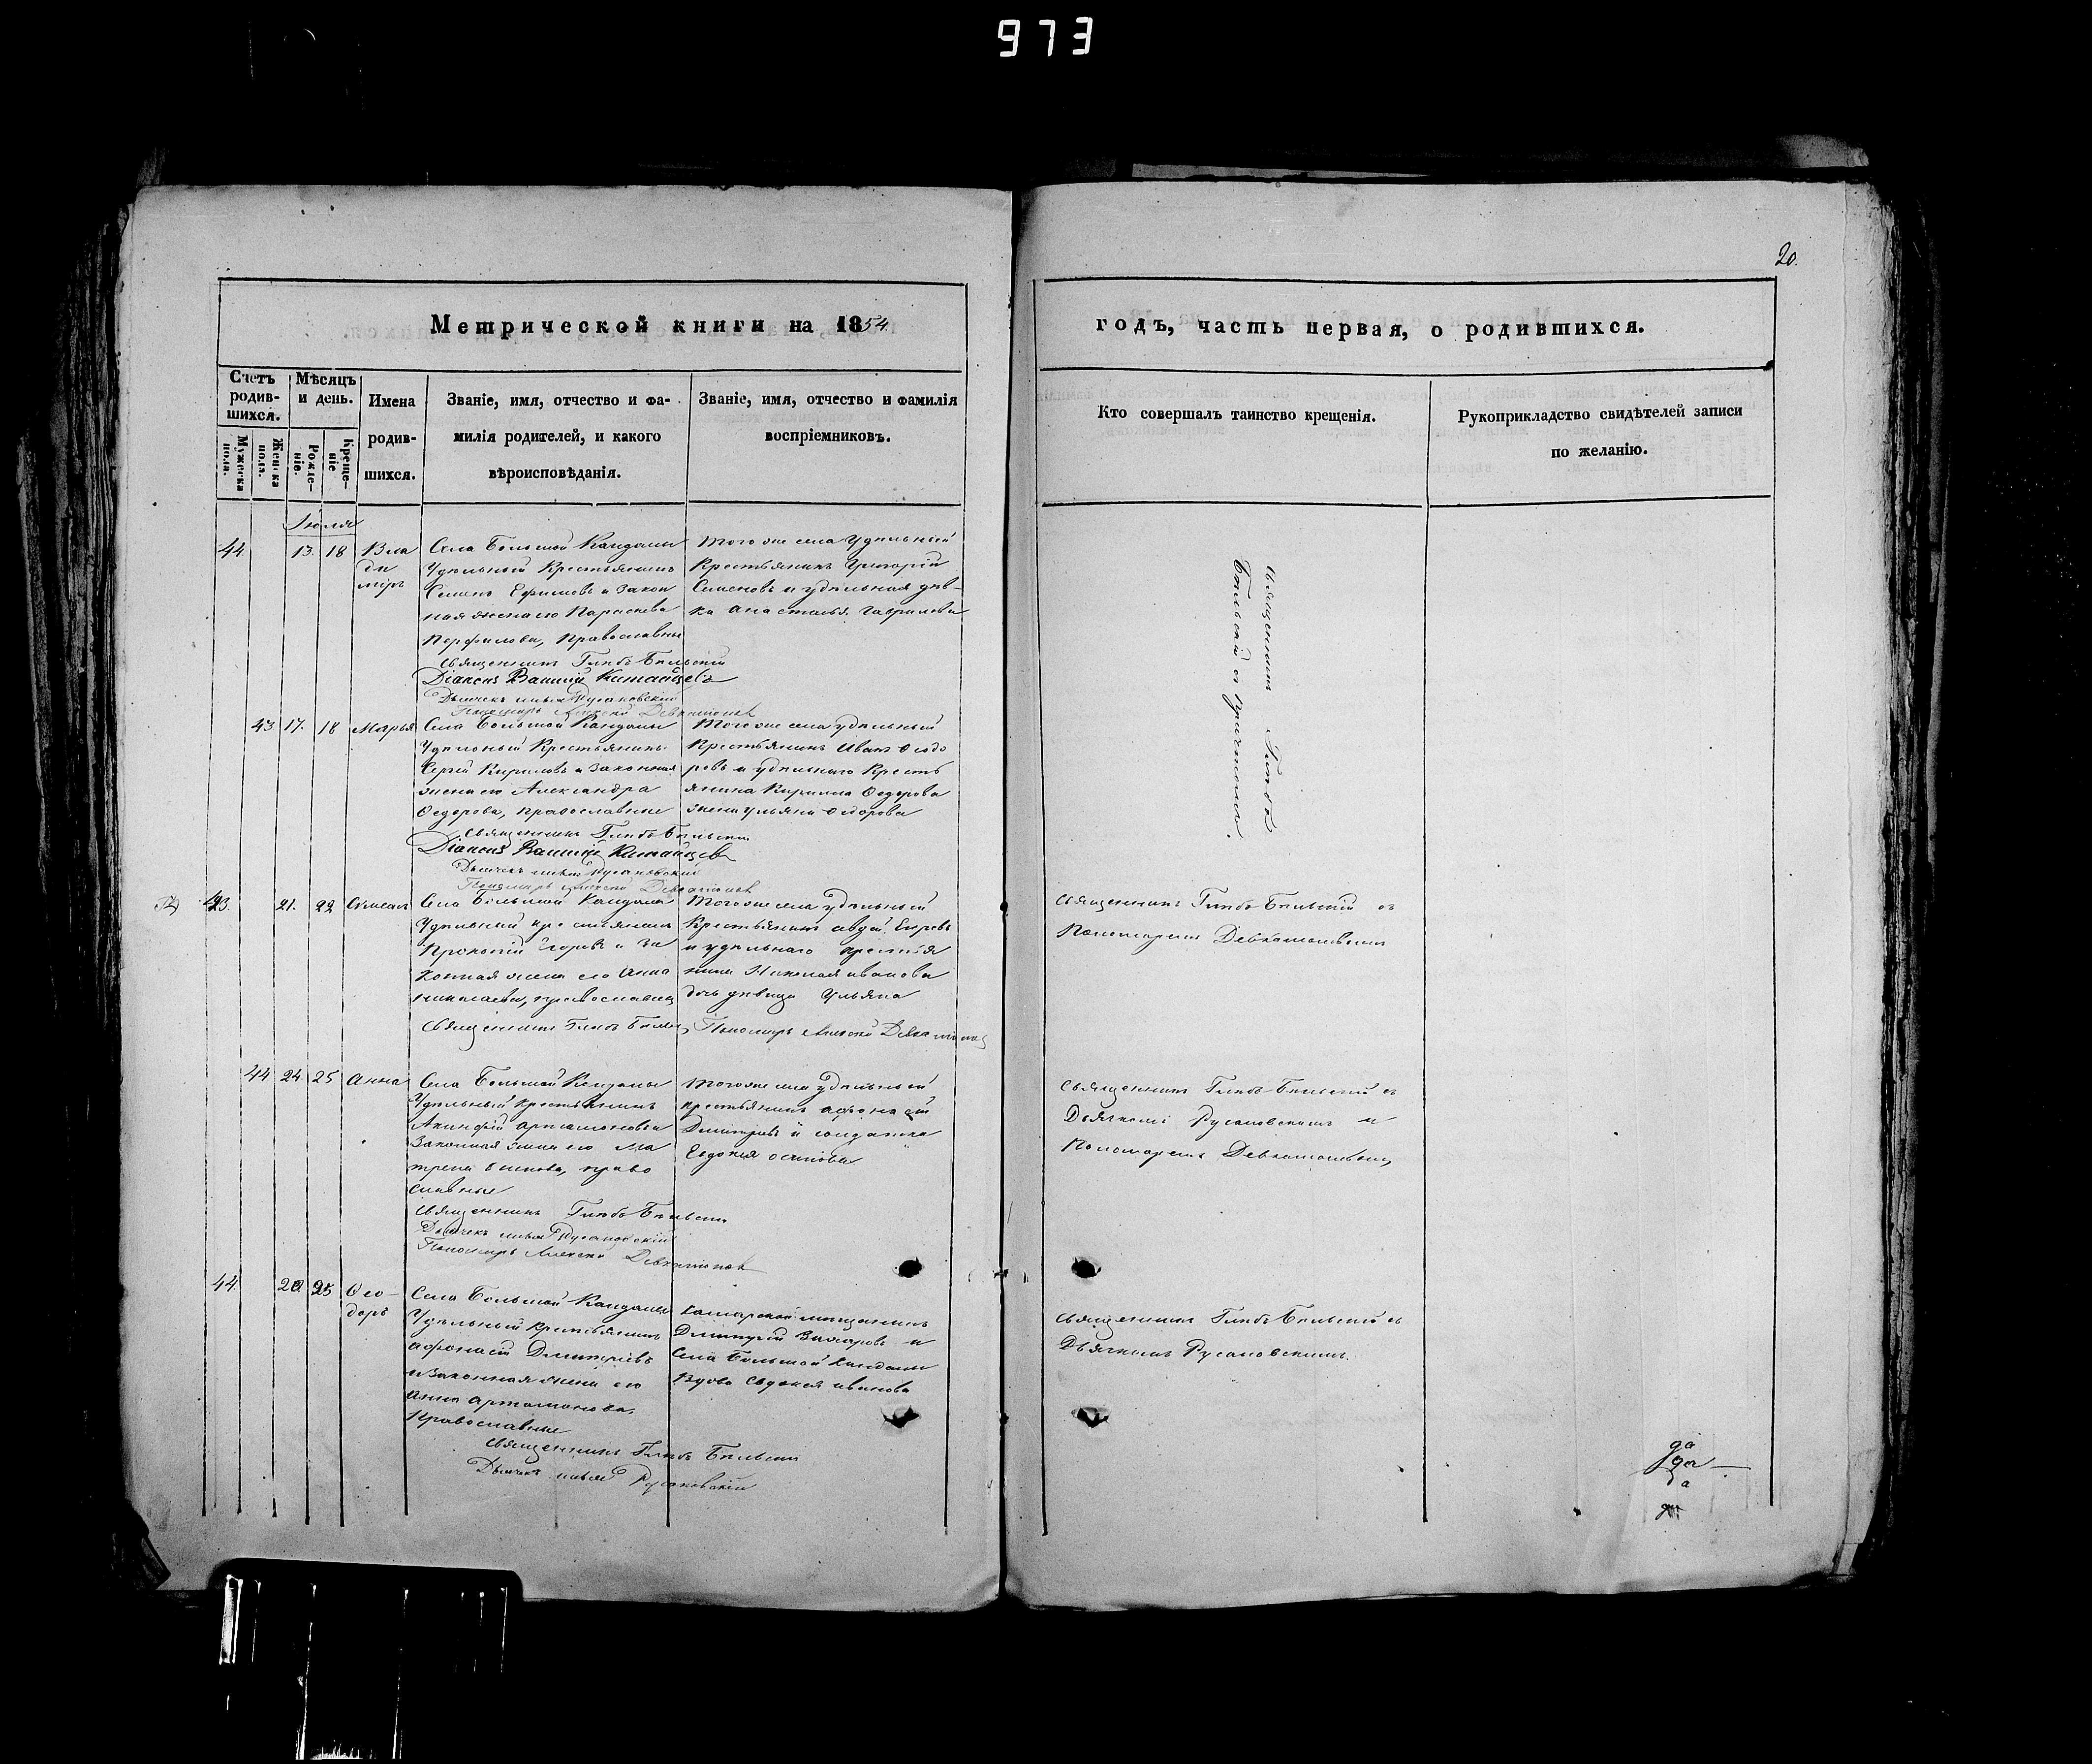 973
20.
Метрической книги на 1854.
годъ, часть первая, о родившихся.
Счетъ родив-шихся.
Мужеска пола.
Женска пола.
Мѣсяцъ и день.
Рожде-ніе.
Креще-ніе
Имена родив-шихся.
Званіе, имя, отчество и фа-
милія родителей, и какого
вѣроисповѣданія.
Званіе, имя, отчество и фамилія
воспріемниковъ.
Кто совершалъ таинство крещенія.
Рукоприкладство свидѣтелей записи
по желанію.
Іюля
44 13. 18 Вла
ди
міръ
Села Большой Кандалы
Удѣльный Крестьянинъ
Семенъ Ефимовъ и закон
ная жена его Параскева
Перфилова, Православные
Священникъ Глѣбъ Бѣльскій
Діаконъ Василій Китайцевъ
Дьячекъ Илья Русановскій
Пономарь Алексѣй Девлатоновъ
Того же села Удѣльный
Крестьянинъ Григорій
Семеновъ и удѣльная дѣв-
ка Анастасья Гаврилова
Священникъ Глѣбъ
Бѣльскій съ причтомъ.
43 17. 18 Марья
Села Большой Кандалы
Удѣльный Крестьянинъ
Сергѣй Кириловъ и законная
жена его Александра
Ѳедорова, православные
Священникъ Глѣбъ Бѣльскій
Діаконъ Василій Китайцевъ
Дьячекъ Илья Русановскій
Пономарь Алексѣй Девлатоновъ
Того же села удѣльный
Крестьянинъ Иванъ Ѳедо
ровъ и удѣльнаго Кресть
янина Кирилла Ѳедорова
жена Ульяна Ѳедорова
43. 21. 22
Села Большой Кандалы
Удѣльный крестьянинъ
Прокопій Егоровъ и за
конная жена его Анна
Николаева, православные
Священникъ Глѣбъ Бѣльскій, Пономарь Алексѣй Девлатоновъ
Того же села удѣльный
Крестьянинъ
и удѣльнаго крестья
нина Николая Иванова
дочь дѣвица Ульяна
Священникъ Глѣбъ Бѣльскій съ
Пономаремъ
44 24 25 Анна
Села Большой Кандалы
Удѣльный крестьянинъ
Акинфій Артамоновъ и
законная жена его Ма
трена, право
славные
Священникъ Глѣбъ Бѣльскій
Дьячекъ Илья Русановскій
Пономарь Алексѣй Девлатоновъ
Того же села удѣльный
крестьянинъ Афонасій
Дмитріевъ и солдатка
Евдокія Осипова
Священникъ Глѣбъ Бѣльскій съ
Дьячкомъ Русановскимъ и
Пономаремъ
44. 20. 25 Ѳео-
доръ
Села Большой Кандалы
Удѣльный Крестьянинъ
Афонасій Дмитріевъ
и законная жена его
Анна Артамонова,
Православные
Священникъ Глѣбъ Бѣльскій
Дьячекъ Илья Русановскій
Самарскій мещанинъ
Дмитрій Захаровъ и
Села Большой Кандалы
вдова Евдокія Иванова
Священникъ Глѣбъ Бѣльскій съ
Дьячкомъ Русановскимъ.